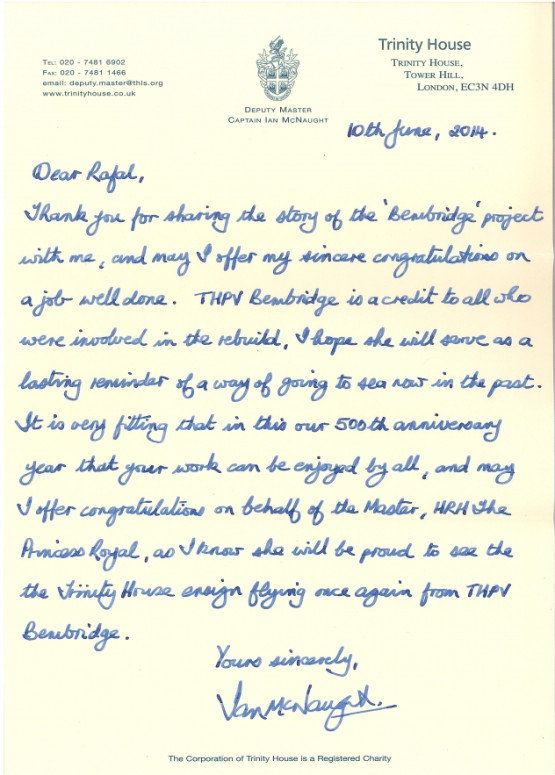 Trinity House
TEL: 020 - 7481 6902
FAX: 020 - 7481 1466
email: deputy.master@thls.org
www.trinityhouse.co.uk
DEPUTY MASTER
CAPTAIN IAN MCNAUGHT
TRINITY HOUSE,
TOWER HILL,
LONDON, EC3N 4DH
10th June, 2014.
Dear Rafal,
Thank you for sharing the story of the 'Bembridge' project
with me, and may I offer my sincere congratulations on
a job well done. THPV Bembridge is a credit to all who
were involved in the rebuild, I hope she will serve as a
lasting reminder of a way of going to sea now in the past.
It is very fitting that in this our 500th anniversary
year that your work can be enjoyed by all, and may
I offer congratulations on behalf of the Master, HRH The
Princess Royal, as I know she will be proud to see the
the Trinity House ensign flying once again from THPV
Bembridge.
Yours sincerely,
Ian McNaught.
The Corporation of Trinity House is a Registered Charity